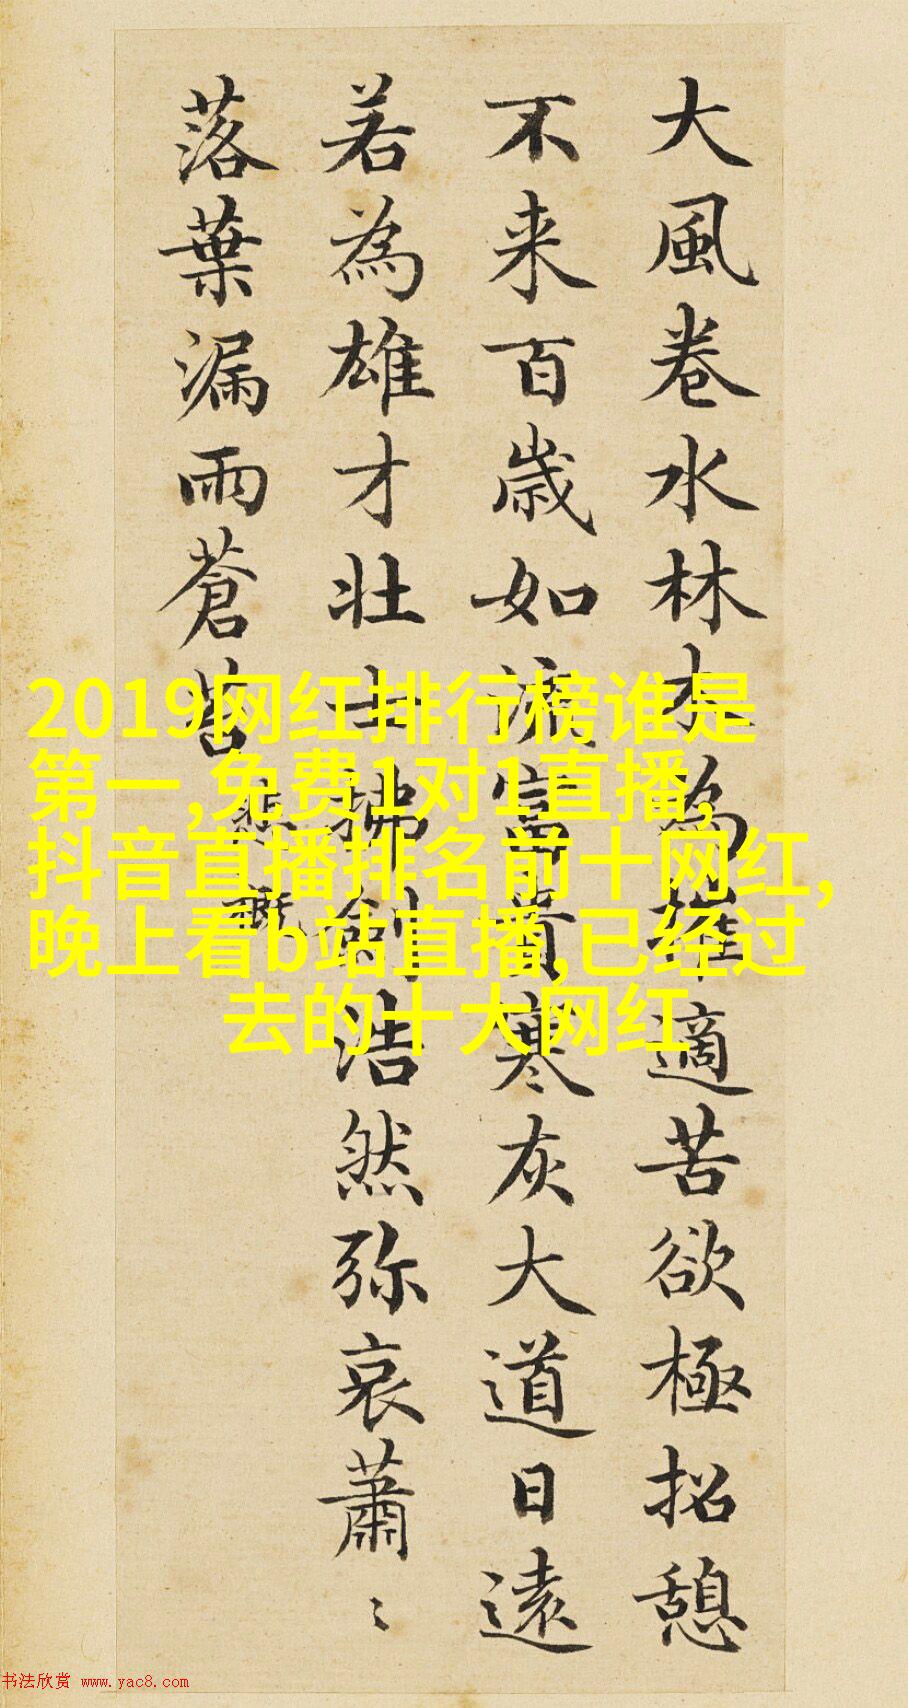 大風卷水林木為摧適苦欲極招憩
不来百歲如流富貴寒灰大道日遠
若為雄才壮士拂劍浩然弥哀蕭〻
落葉漏雨蒼苔
悲慨
2019网红排行榜谁是
第一,免费1对1直播,
抖音直播排名前十网红,
晚上看b站直播,已经过
去的十大网红
书法欣赏 www.yac8.com